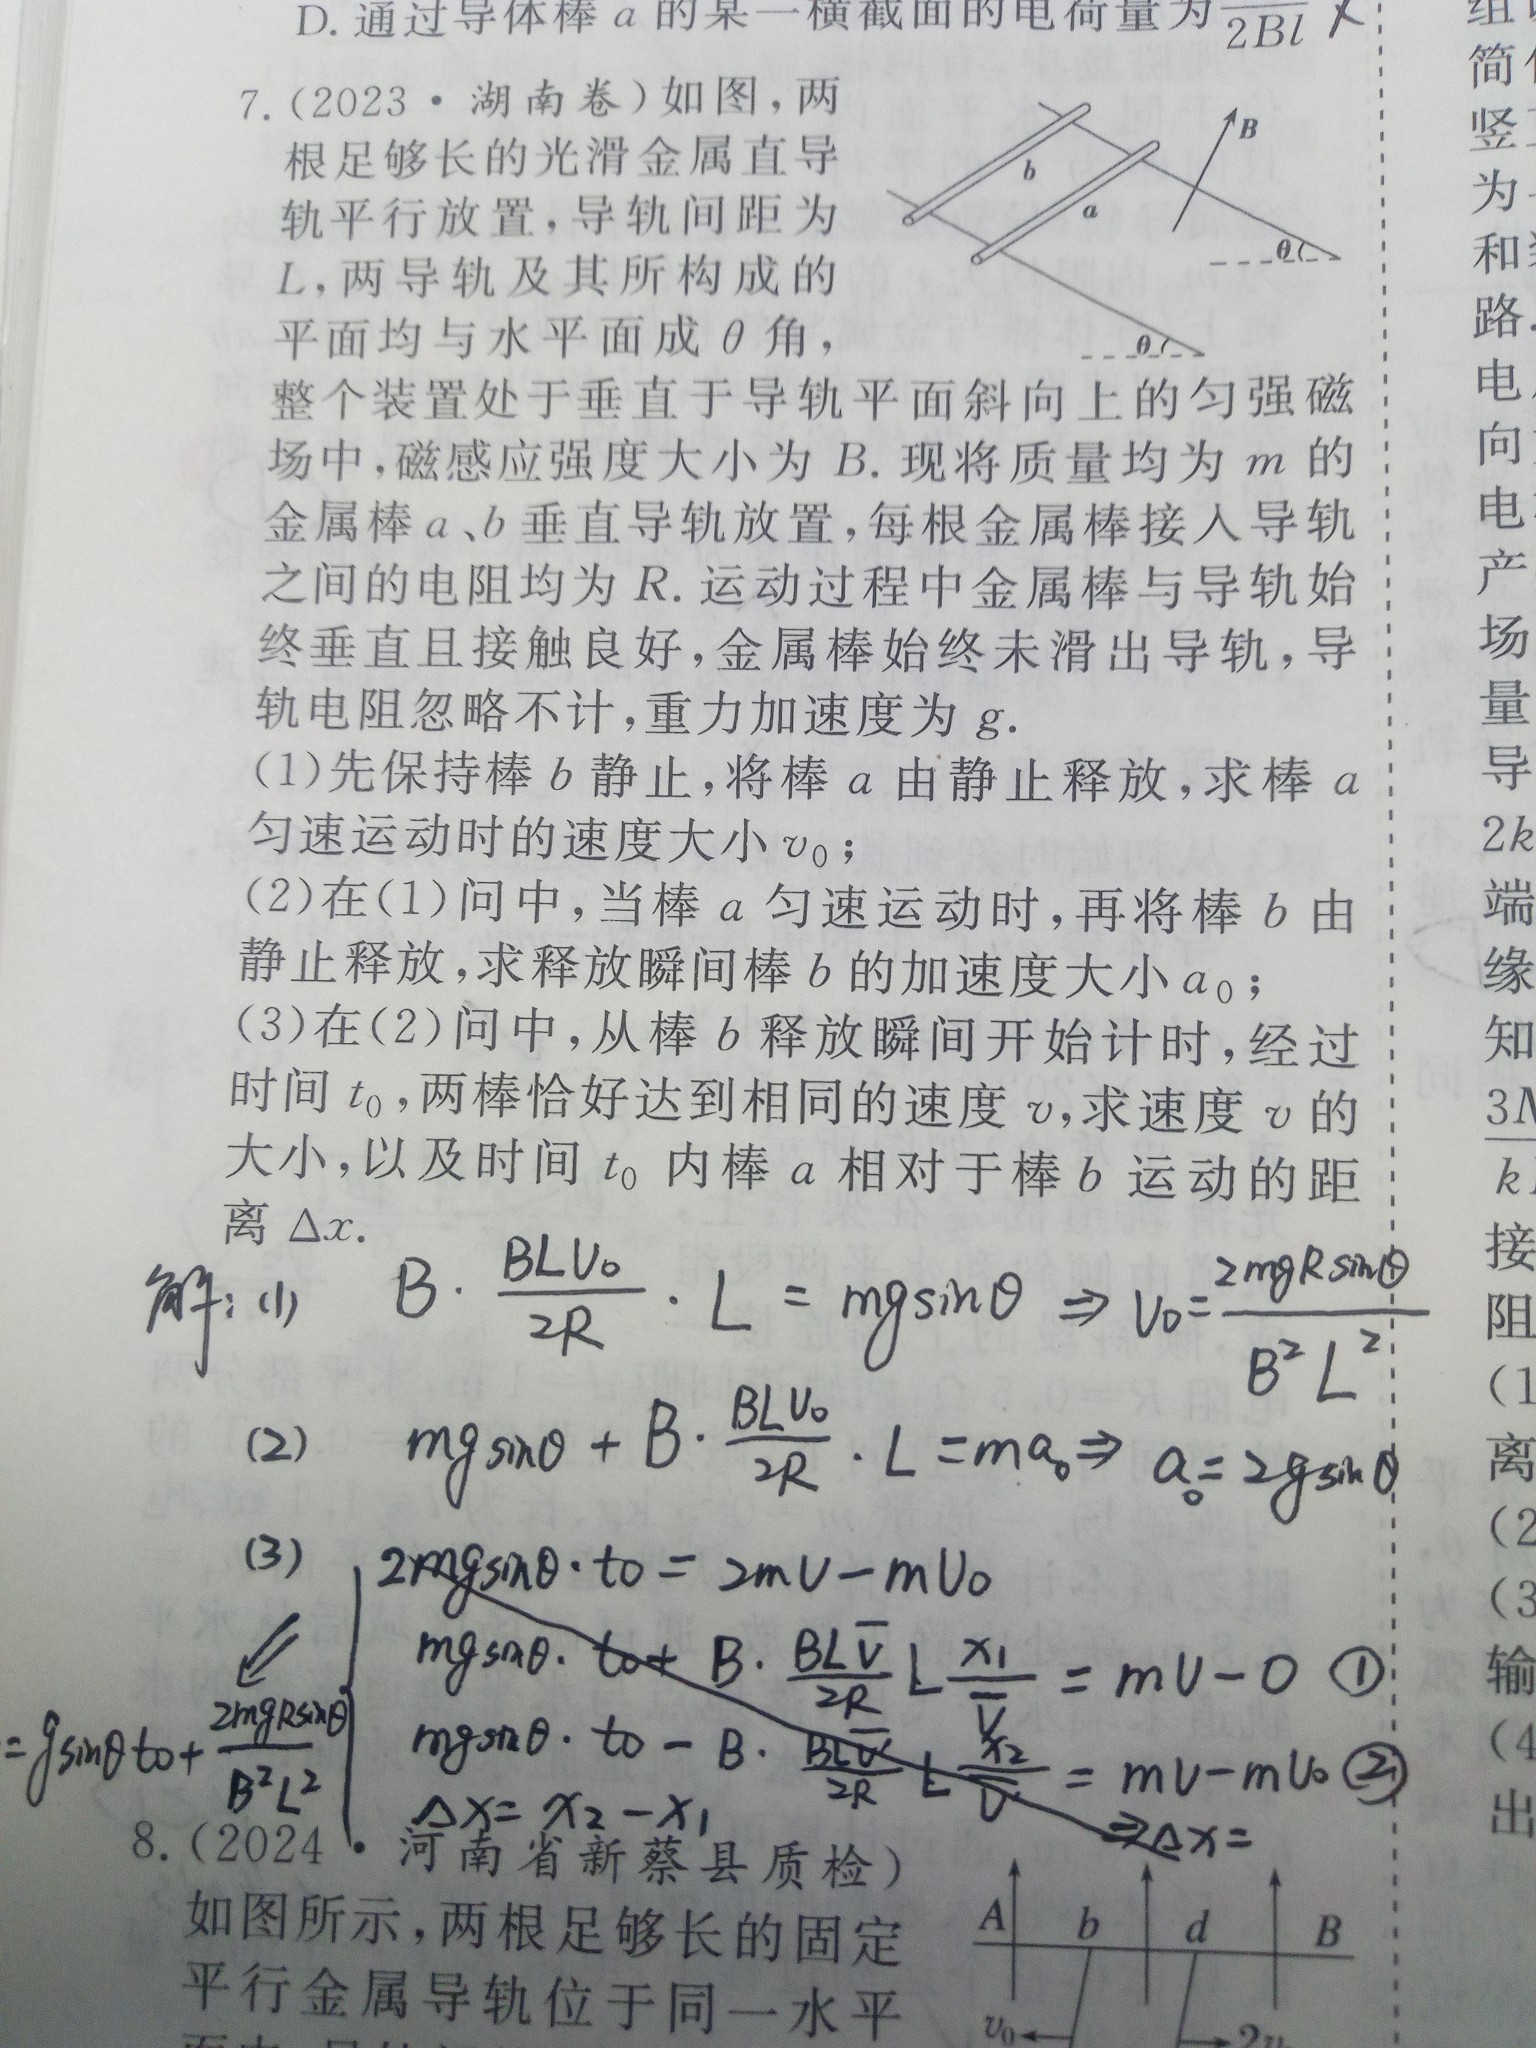 D. 通过导体棒 a 的某一横截面的电荷量为 2Bl ×
7. (2023·湖南卷)如图,两
根足够长的光滑金属直导
轨平行放置,导轨间距为
L,两导轨及其所构成的
平面均与水平面成 θ 角,
b
a
B
θ
θ
整个装置处于垂直于导轨平面斜向上的匀强磁
场中,磁感应强度大小为 B. 现将质量均为 m 的
金属棒 a、b 垂直导轨放置,每根金属棒接入导轨
之间的电阻均为 R. 运动过程中金属棒与导轨始
终垂直且接触良好,金属棒始终未滑出导轨,导
轨电阻忽略不计,重力加速度为 g.
(1)先保持棒 b 静止,将棒 a 由静止释放,求棒 a
匀速运动时的速度大小 v₀;
(2)在(1)问中,当棒 a 匀速运动时,再将棒 b 由
静止释放,求释放瞬间棒 b 的加速度大小 a₀;
(3)在(2)问中,从棒 b 释放瞬间开始计时,经过
时间 t₀,两棒恰好达到相同的速度 v,求速度 v 的
大小,以及时间 t₀ 内棒 a 相对于棒 b 运动的距
离 Δx.
解:(1) B·\frac{BLv₀}{2R}·L = mgsinθ ⇒ v₀=\frac{2mgRsinθ}{B²L²}
(2) mgsinθ + B·\frac{BLv₀}{2R}·L = ma₀ ⇒ a₀=2gsinθ
(3) 2mgsinθ·t₀ = 2mv − mv₀
mgsinθ·t₀ + B·\frac{BL\bar{v}}{2R}L\frac{x₁}{\bar{v}} = mv − 0 ①
mgsinθ·t₀ − B·\frac{BL\bar{v}}{2R}L\frac{x₂}{\bar{v}} = mv − mv₀ ②
Δx = x₂ − x₁ ⇒ Δx =
= gsinθt₀ + \frac{2mgRsinθ}{B²L²}
8. (2024·河南省新蔡县质检)
如图所示,两根足够长的固定
平行金属导轨位于同一水平
A b d B
v₀
组
简
竖
为
和
路.
电
向
电
产
场
量
导
2k
端
缘
知
3
k
接
阻
(1
离
(2
(3
输
(4
出